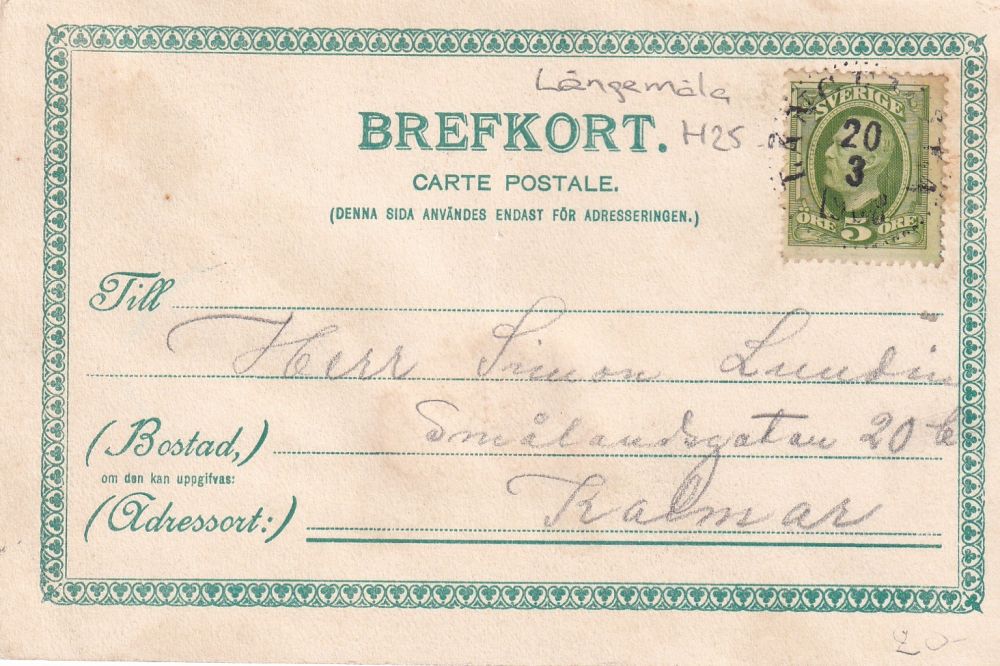 Långemåla
H25
BREFKORT.
CARTE POSTALE.
(DENNA SIDA ANVÄNDES ENDAST FÖR ADRESSERINGEN.)
SVERIGE
20
3
ÖRE 5 ÖRE
Till
Herr Simon Lundin
(Bostad,) Smålandsgatan 20
om den kan uppgifvas:
(Adressort:) Kalmar